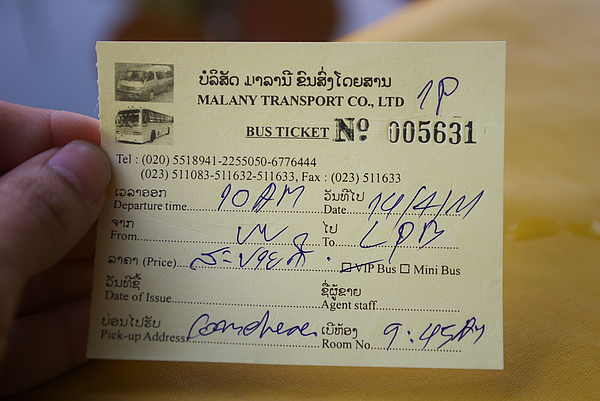 ບໍລິສັດ ມາລານີ ຂົນສົ່ງໂດຍສານ
MALANY TRANSPORT CO., LTD 1P
BUS TICKET Nº 005631
Tel : (020) 5518941-2255050-6776444
(023) 511083-511632-511633, Fax : (023) 511633
ເວລາອອກ ວັນທີໄປ
Departure time 10 AM Date 14/4/11
ຈາກ ໄປ
From To LPB
ລາຄາ (Price) VIP Bus Mini Bus
ວັນທີຊື້ ຊື່ຜູ້ຂາຍ
Date of Issue Agent staff
ບ່ອນໄປຮັບ ເບີຫ້ອງ
Pick-up Address Room No. 9:45 AM